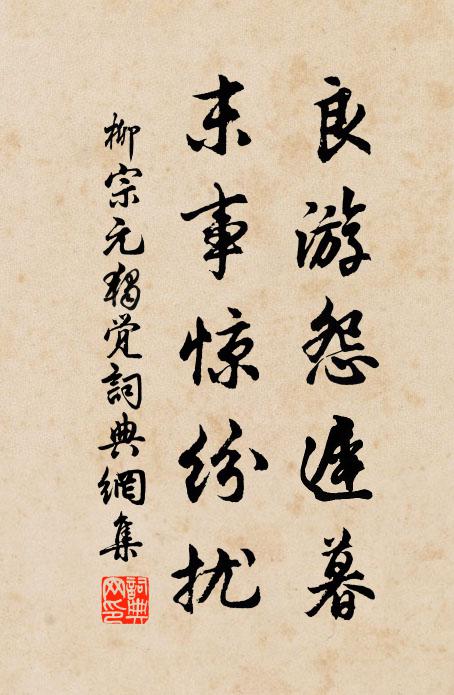 良游怨迟暮
末事惊纷扰
柳宗元独觉詞典網集
詞典网印